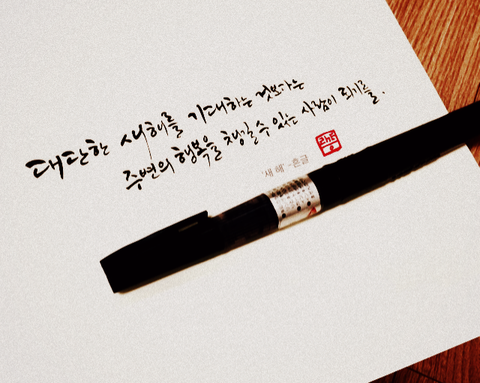 대단한 새해를 기대하는 것보다는
주변의 행복을 챙길 수 있는 사람이 되기를.
'새해' -흔글